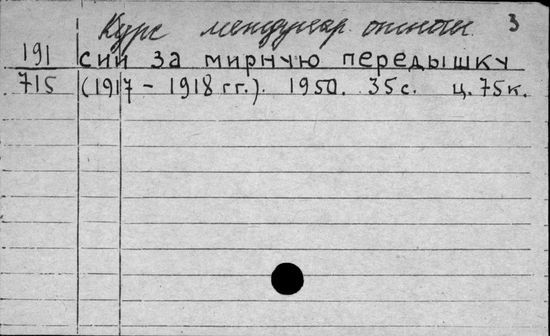 Курс междунар. отношен. 3
191 сии за мирную передышку
715 (1917 – 1918 гг.). 1950. 35 с. ц. 75 к.